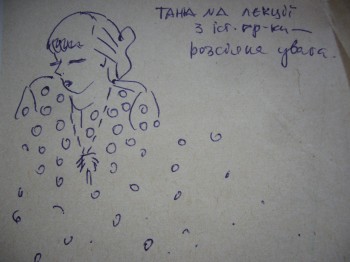 ТАНА NA ЛЕКЦІЇ
З іст. гр-ки —
розсіяна увага.